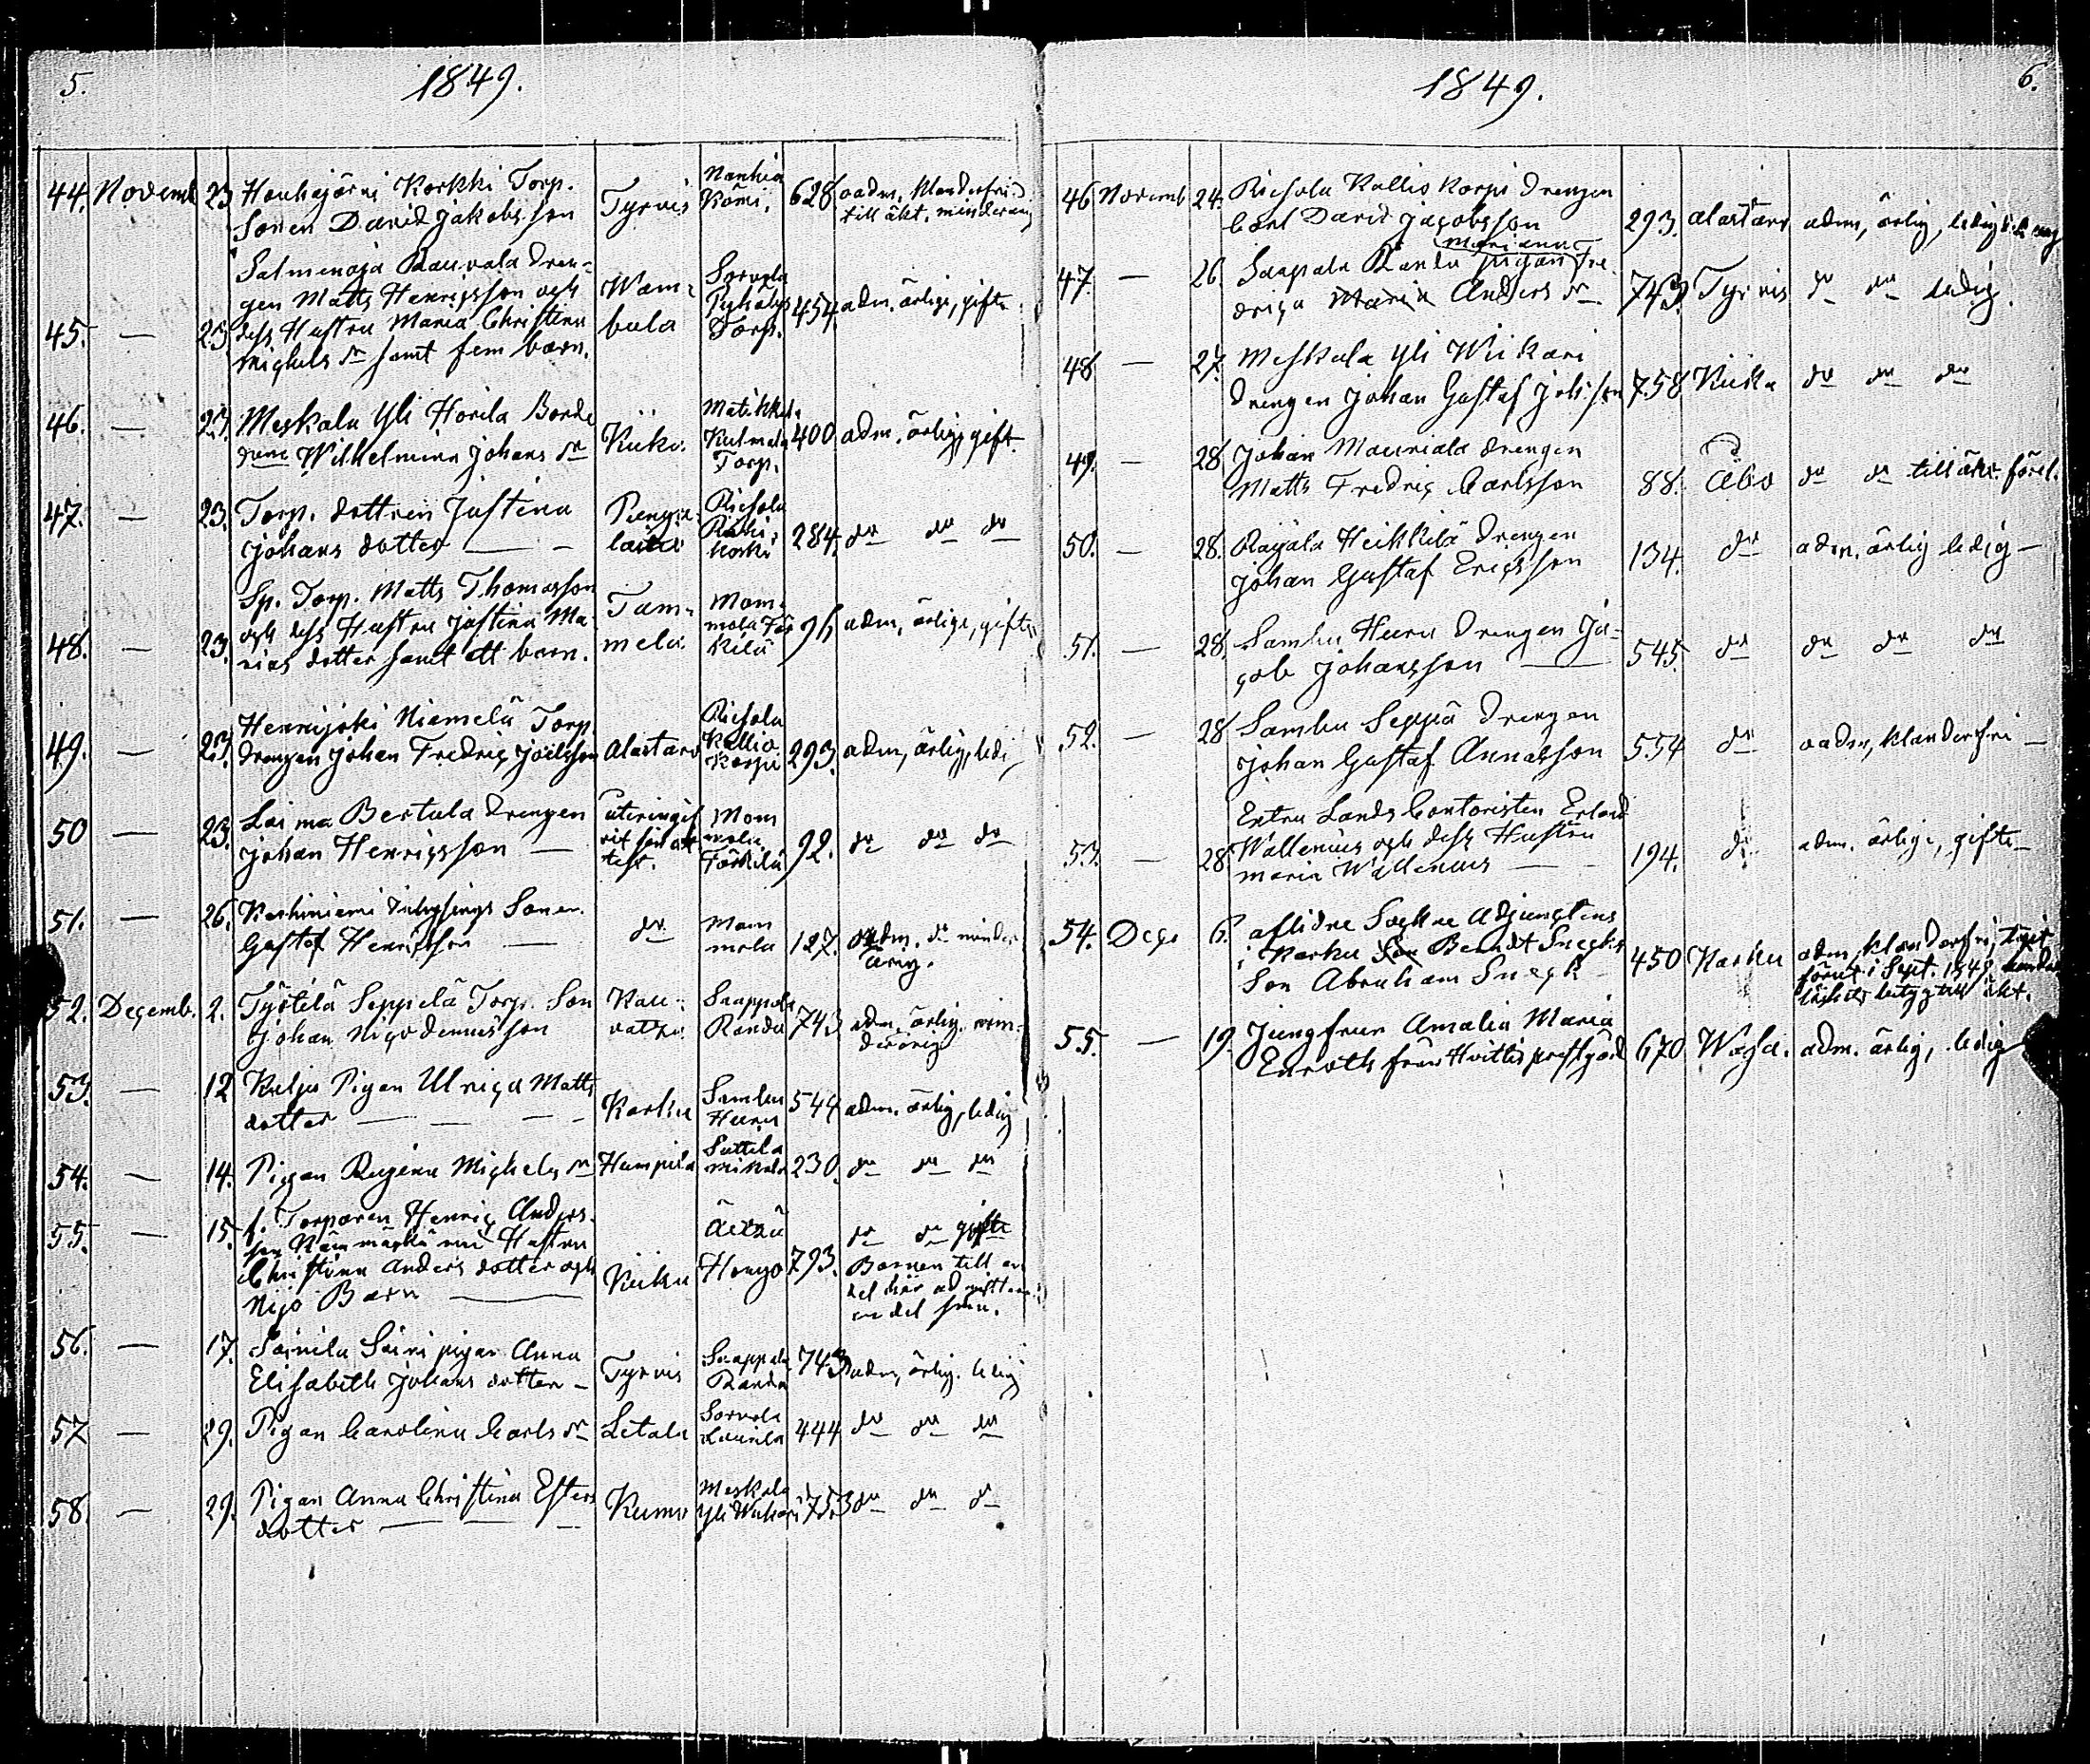 5.
1849.
44. Novemb 23 Houhajärvi Korkki Torp.
Sonen David Jakobsson
Tyrvis
Kömi,
628
oadm, klanderfri
till äkt. minderårig
Salmenoja Rauvola dren-
gen Matts Henricsson och
45. — 23. dess Hustru Maria Christina
Michels dr samt fem barn.
Wam-
bula
Sorvola
Pyhälys
Torp.
454
adm. ärlige, gifte
46. — 23. Meskala Yli Horila Bonde
Wilhelmina Johans dr
Kiuko.
Kulmala
Torp.
400
adm. ärlig, gift.
47. — 23. Torp. dottren Justina
Johans dotter — —
Punga-
laitio
Riesola
Koski
284.
do do do
Sp. Torp. Matts Thomasson
och dess Hustru Justina Ma-
48. — 23. rias dotter samt ett barn.
Tam-
mela
Mom-
mola
96
adm, ärlige, gifte
49. — 23. Hennijoki Niemelä Torp.
drengen Johan Fredric Joelsson
Alastaro
Riesola
Kallio
Korpi
293.
adm, ärlig, ledi
50 — 23. Loima Bertula drengen
Johan Henricsson —
Mom
mola
Törkilä
92.
do do do
51. — 26. Sonen
Gustaf Henricsson —
do
Mom
mola
127.
adm. do minder
årig.
52. Decemb. 2. Työtilä Seppelä Torp. Son
Johan Nicodemusson
Kau-
vatsa
Saappala
Randa
743
adm. ärlig. min-
derårig
53. — 12 Kulju Pigan Ulrica Matts
dotter — — —
Karku
Sambu
Heeru
544
adm. ärlig, ledig
54. — 14. Pigan Regina Michels dr
Humpila
Suttila
230.
do do do
55. — 15. f. Torparen Henric Anders-
son Hustru
Christina Anders dotter och
Nijo Barn —
Kiuku
Hongo
793.
do do gifte
Barnen till en
del här admitterade
en del
56. — 17. Soinila Soini pigan Anna
Elisabeth Johans dotter —
Tyrvis
Saappala
Randa
743
adm, ärlig. ledig
57 — 29. Pigan Carolina Carls dr
Letala
Sorvola
Laurila
444
do do do
58. — 29. Pigan Anna Christina Esters
dotter — — —
Kumo
Meskala
Yli Wiikari
753
do do do
1849.
6.
46 Novemb 24. Riesola Kallio Korpi drengen
Carl David Jacobsson
293.
Alastaro
adm, ärlig, ledig
Marianna
47. — 26. Saapala Randa pigan Fre-
drica Maria Anders dr
743.
Tyrvis
do do ledig.
48 — 27. Meskala Yli Wiikari
drengen Johan Gustaf Joh:son
758
Kiuka
do do do
49. — 28 Johan Mauriala drengen
Matts Fredric Carlsson
88.
Åbo
do do till äkt. förel.
50. — 28. Raijala Heikkilä drengen
Johan Gustaf Ericsson
134.
do
adm. ärlig ledig —
51. — 28. Sambu Heeru drengen Ja-
cob Johansson —
545.
do
do do do
52. — 28 Sambu Seppä drengen
Johan Gustaf Annasson
554
do
oadm, klanderfri —
Extra Lands Contoristen Erland
53. — 28. Wallenius och dess Hustru
Maria Wallenius —
194.
do
adm. ärlige, gifte —
54. Decr 6. aflidne Sockne Adjunctens
i Karku Son Berndt Snecks
Son Abraham Sneck —
450
Karku
adm, klanderfri,
förut i Sept. 1849.
betyg till äkt.
55. — 19. Jungfrun Amalia Maria
Enroth från Hvittis prestgård
670
Wasa.
adm. ärlig, ledig